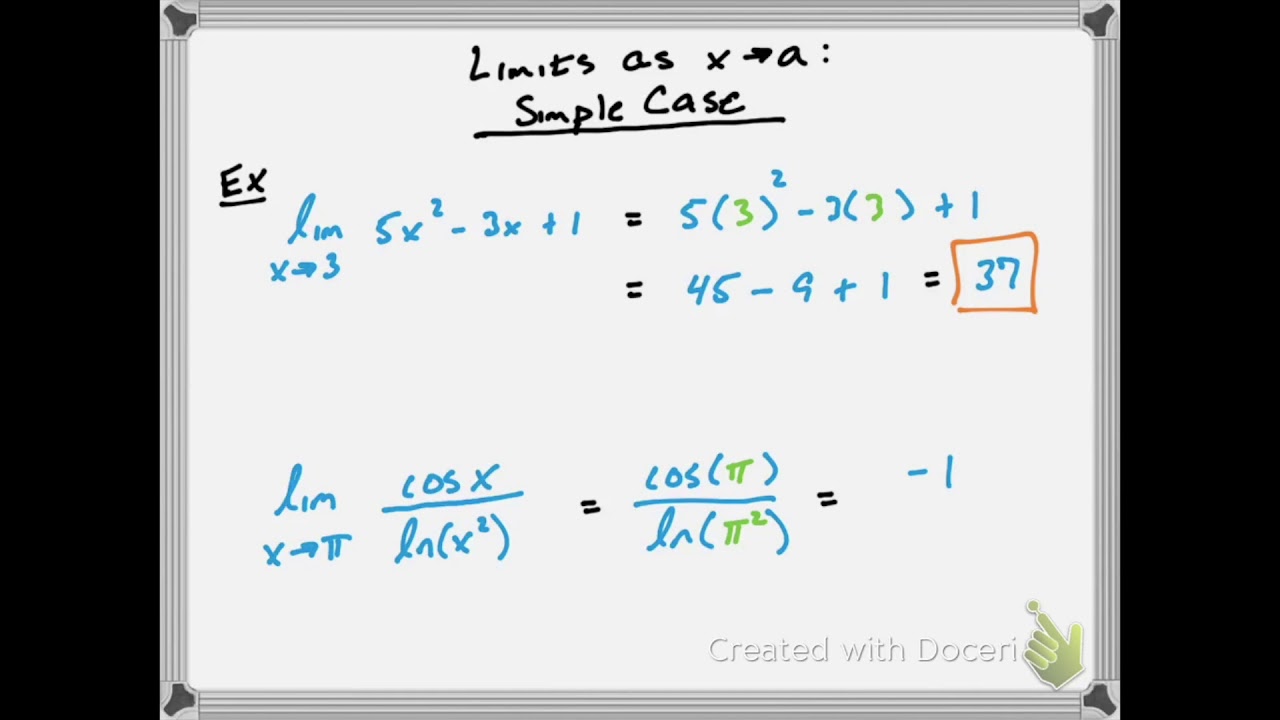 Limits as x→a:
Simple Case
Ex
lim x→3 5x² - 3x + 1 = 5(3)² - 3(3) + 1
= 45 - 9 + 1 = 37
lim x→π cos x / ln(x²) = cos(π) / ln(π²) = -1
Created with Doceri